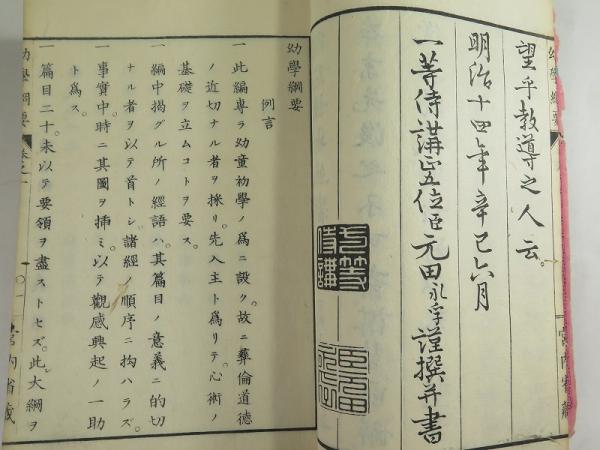 望乎教導之人云。
明治十四年辛巳六月
一等侍講正五位臣元田永孚謹撰并書
一等侍講
幼學綱要
宮內省藏
幼學綱要
例言
一此編專ラ幼童初學ノ爲ニ設ク。故ニ彝倫道德
ノ近切ナル者ヲ採リ。先入主ト爲リテ。心術ノ
基礎ヲ立ムコトヲ要ス。
一編中揭グル所ノ經語ハ。其篇目ノ意義ニ的切
ナル者ヲ以テ首トシ。諸經ノ順序ニ拘ハラズ。
一事實中。時ニ其圖ヲ插ミ。以テ觀感興起ノ一助
ト爲ス。
一篇目二十。未以テ要領ヲ盡ストセズ。此大綱ヲ
幼學綱要
卷之一
宮內省藏